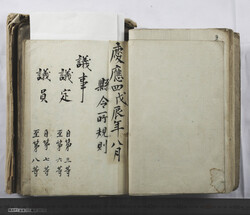 慶應四戊辰年八月
縣令所規則
議事
議定 自第三等 至第六等
議員 自第七等 至第八等